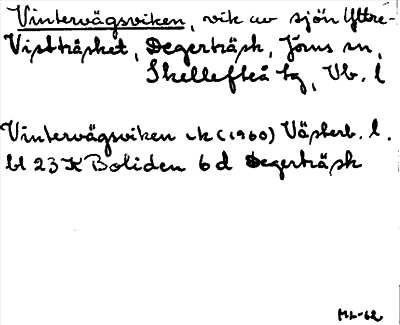 Vintervägsviken, vik av sjön Yttre-
Vistträsket, Degerträsk, Jörns sn,
Skellefteå tg, Vb. l
Vintervägsviken ek (1960) Västerb. l.
bl 23 K Boliden 6 d Degerträsk
ML-62